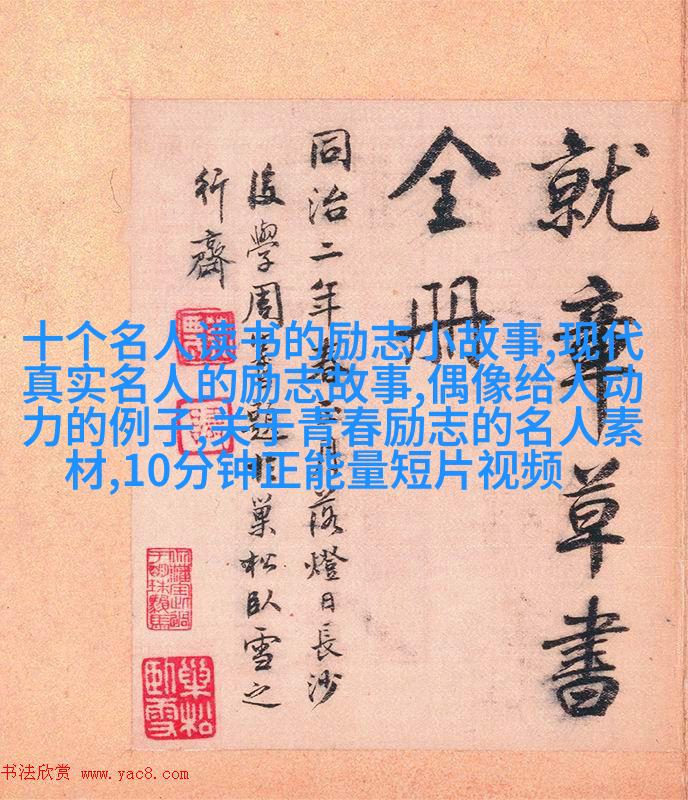 就章草書
全册
同治二年春正月落燈日長沙
後學周題於巢松臥雪之
行齋
十个名人读书的励志小故事,现代
真实名人的励志故事,偶像给人动
力的例子,关于青春励志的名人素
材,10分钟正能量短片视频
巢松
臥雪
书法欣赏 www.yac8.com